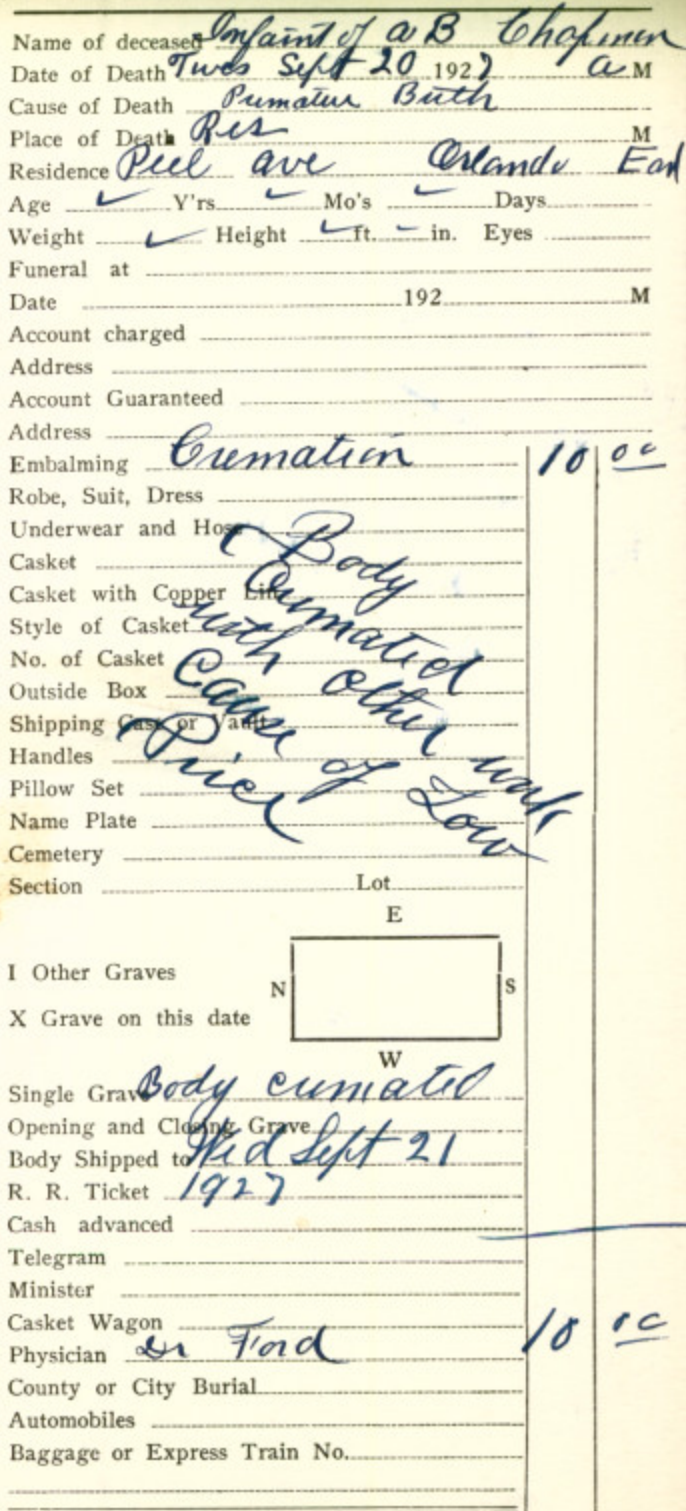 Name of deceased Infaint of a B Chapman
Date of Death Tues Sept 20 1927 a M
Cause of Death Prematur Birth
Place of Death Res M
Residence Peel ave Orlando
Age Y'rs Mo's Days
Weight Height ft. in. Eyes
Funeral at
Date 192 M
Account charged
Address
Account Guaranteed
Address
Embalming Cremation 10 00
Robe, Suit, Dress
Underwear and Hose
Casket
Casket with Copper Lin
Style of Casket
No. of Casket
Outside Box
Shipping Case or Vault
Handles
Pillow Set
Name Plate
Cemetery
Body
Cremated
with other work
Cause of Low
Price
Section Lot
E
I Other Graves
N S
X Grave on this date
W
Single Grave Body cremated
Opening and Closing Grave
Body Shipped to Wed Sept 21
R. R. Ticket 1927
Cash advanced
Telegram
Minister
Casket Wagon
Physician Dr Ford 10 00
County or City Burial
Automobiles
Baggage or Express Train No.